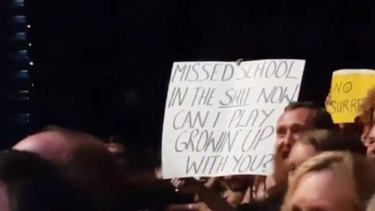 MISSED SCHOOL
IN THE SHIT NOW
CAN I PLAY
GROWIN UP
WITH YOU?
NO
SURRE